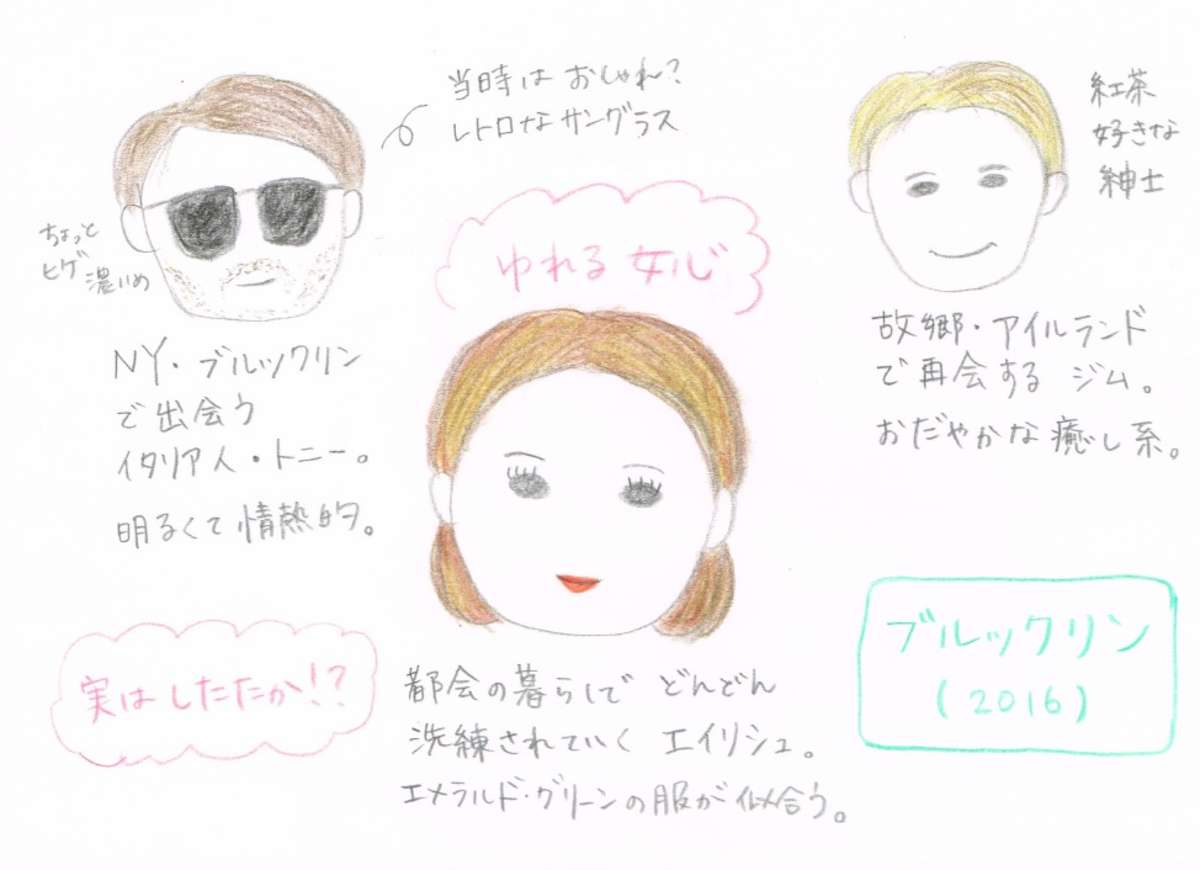 当時は おしゃれ?
レトロなサングラス
ちょっと
ヒゲ
濃いめ
NY・ブルックリン
で出会う
イタリア人・トニー。
明るくて情熱的。
ゆれる女心
紅茶
好きな
紳士
故郷・アイルランド
で再会する ジム。
おだやかな癒し系。
実はしたたか!?
都会の暮らしで どんどん
洗練されていく エイリシュ。
エメラルド・グリーンの服が似合う。
ブルックリン
(2016)